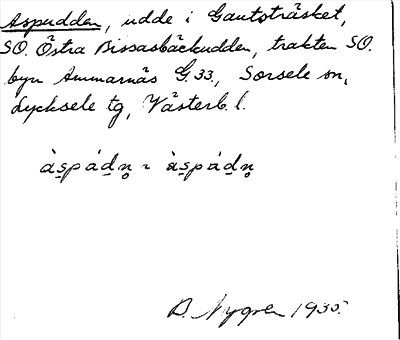 Aspudden, udde i Gautsträsket,
SO. Östra Bissasbäckudden, trakten SO.
byn Ammarnäs G. 33., Sorsele sn,
Lycksele tg, Västerb. l.
àspádn̥ ~ àspádn̥
B. Nygren 1935.